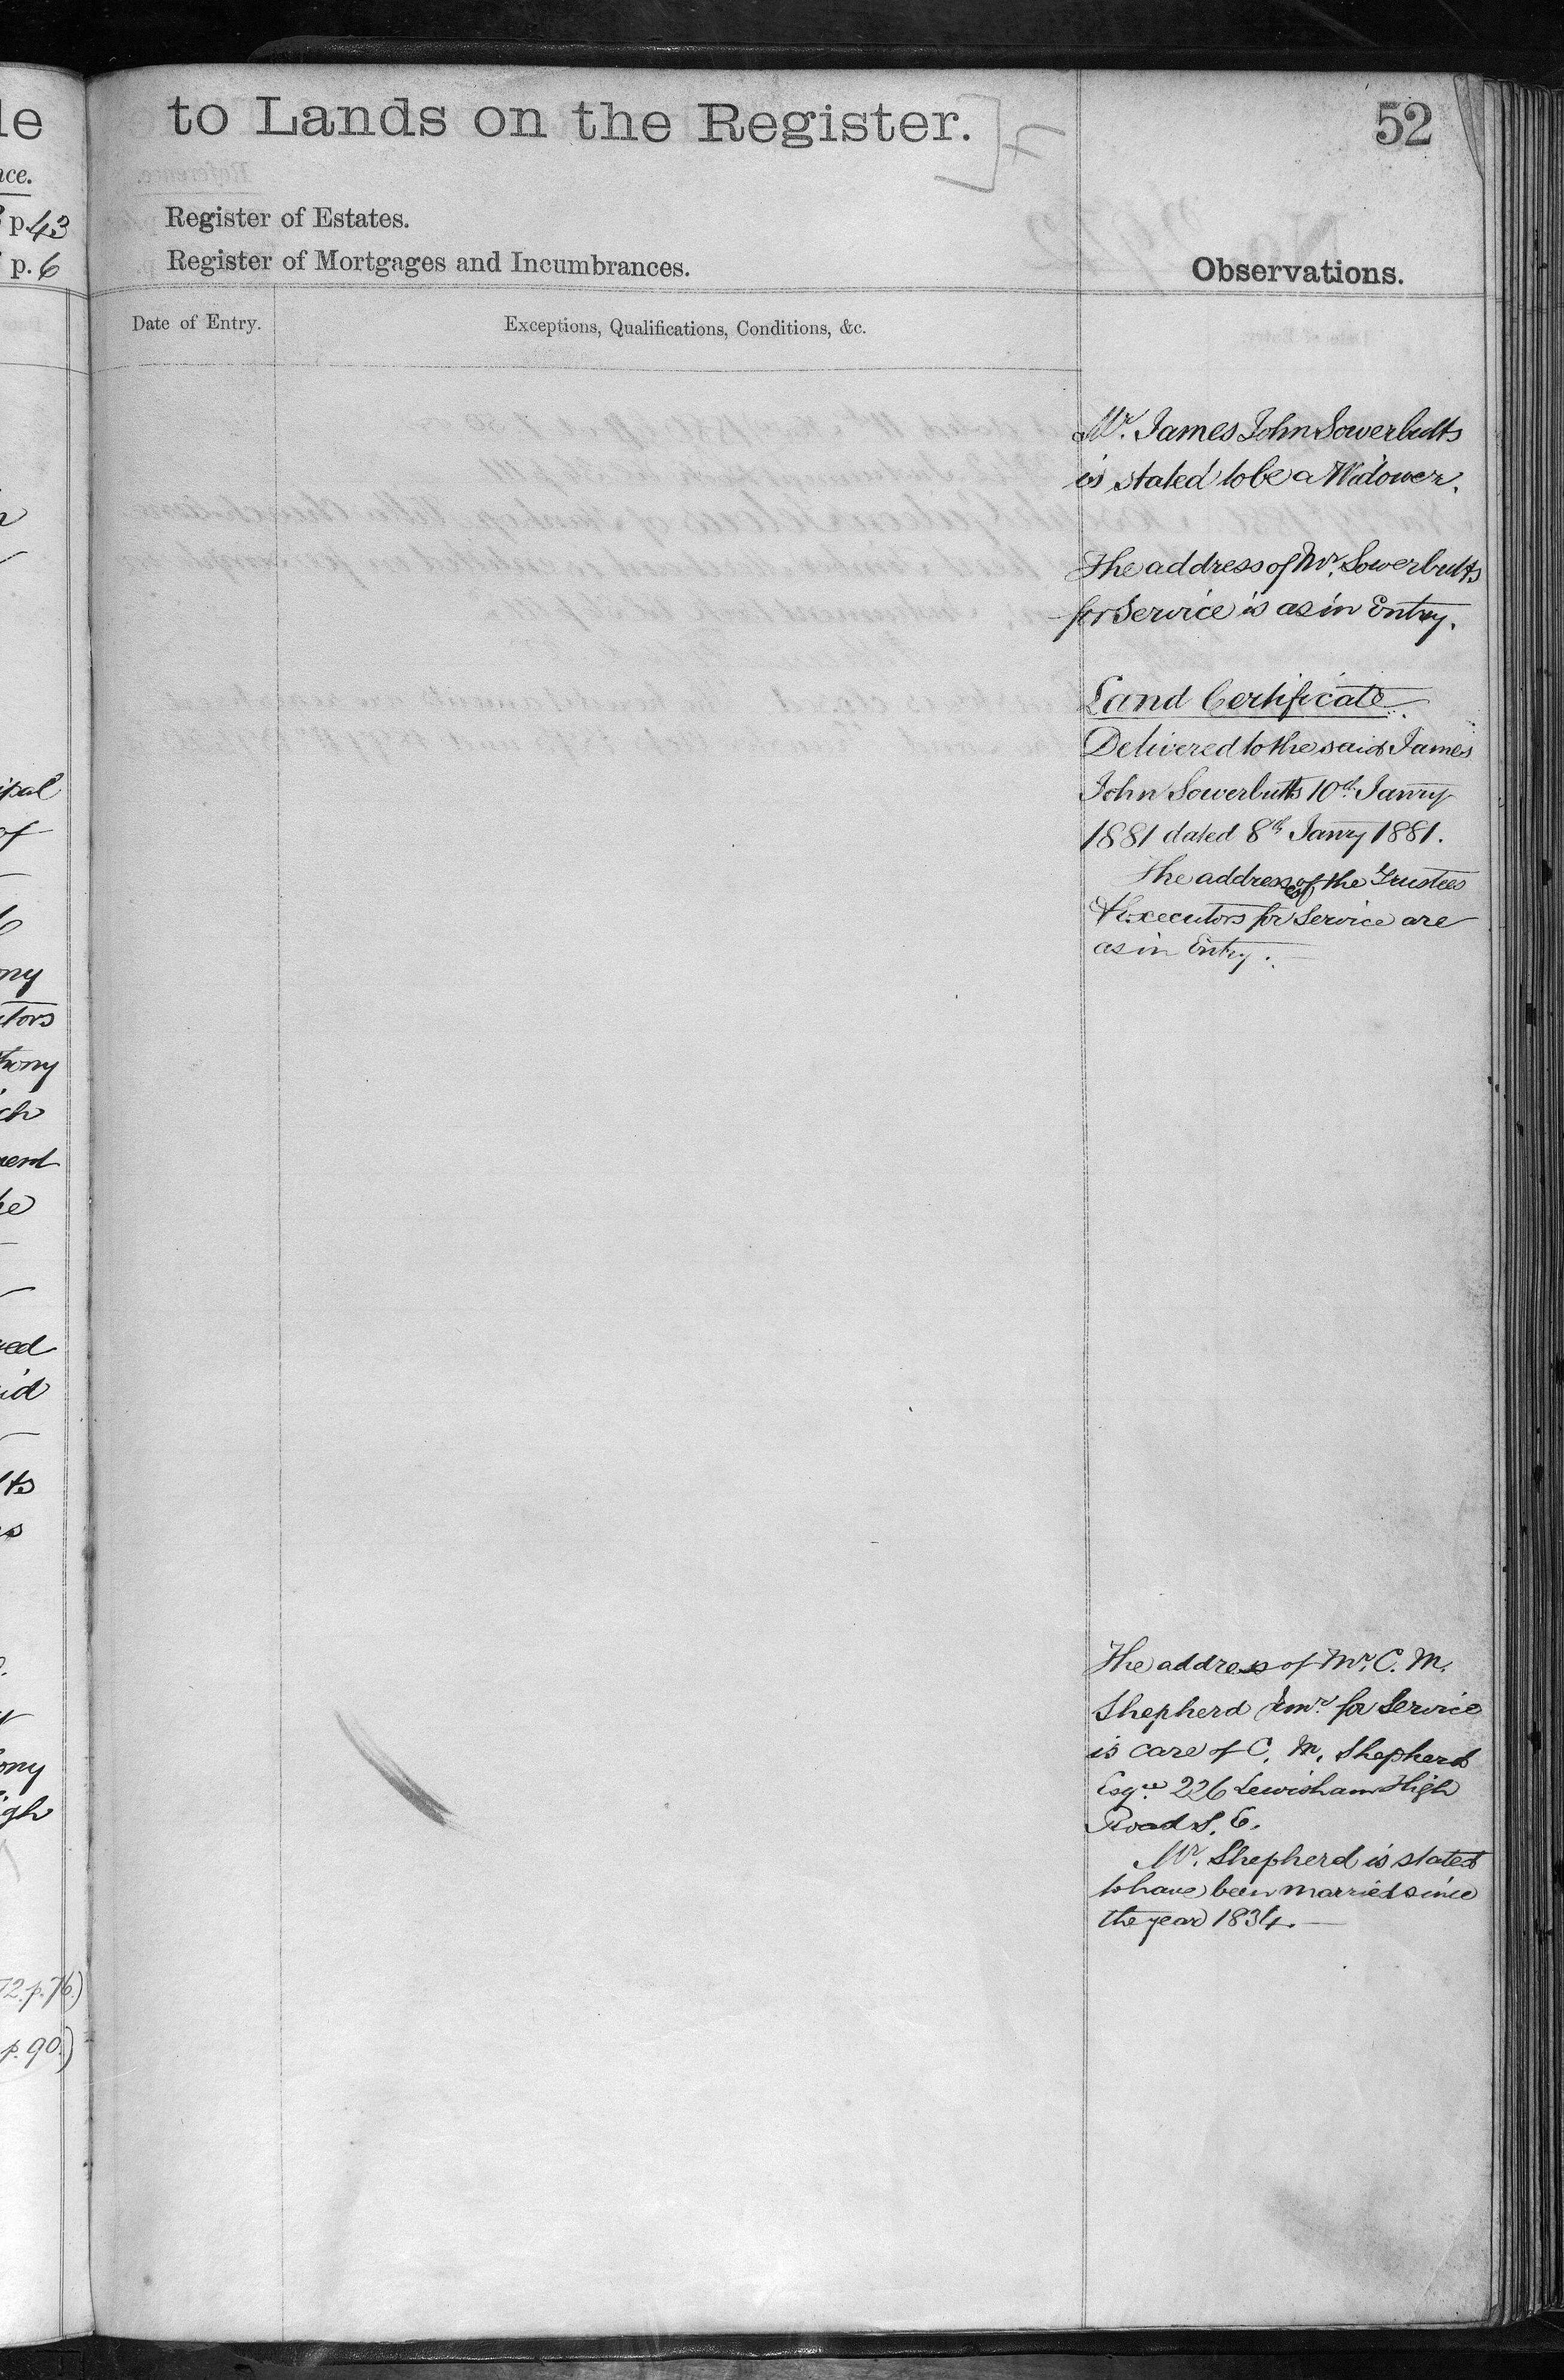 le
nce.
p. 43
p. 6
ipal
of
ny
tors
hony
ch
ment
he
ved
id
lts
ony
igh
72. p. 76.)
p. 90.)
to Lands on the Register.
52
Register of Estates.
Register of Mortgages and Incumbrances.
Observations.
Date of Entry.
Exceptions, Qualifications, Conditions, &c.
Mr. James John Sowerbutts
is stated to be a Widower.
The address of Mr. Sowerbutts
for Service is as in Entry.
Land Certificate.
Delivered to the said James
John Sowerbutts 10th Janry
1881 dated 8th Janry 1881.
The addresses of the Trustees
& Executors for Service are
as in Entry.
The address of Mr. C. M.
Shepherd Junr. for Service
is care of C. M. Shepherd
Esqre 226 Lewisham High
Road S. E.
Mr. Shepherd is stated
to have been married since
the year 1834.